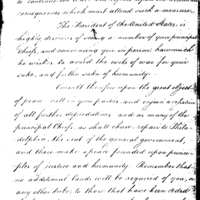 consequences which must attend such a measure.
The President of the United States, is
highly desirous of seeing a number of your principal
Chiefs, and convincing you in person how much
he wishes to avoid the evils of war for your
sake, and for the sake of humanity.
Consult therefore upon the great object
of peace call in your parties and enjoin a cessation
of all further depredations and as many of the
principal Chiefs as shall chuse repair to Phila-
delphia, the seat of the general government,
and there make a peace founded upon princi-
ples of justice and humanity. Remember that
no additional lands will be required of you, or
any other tribe, to those that have been ceded